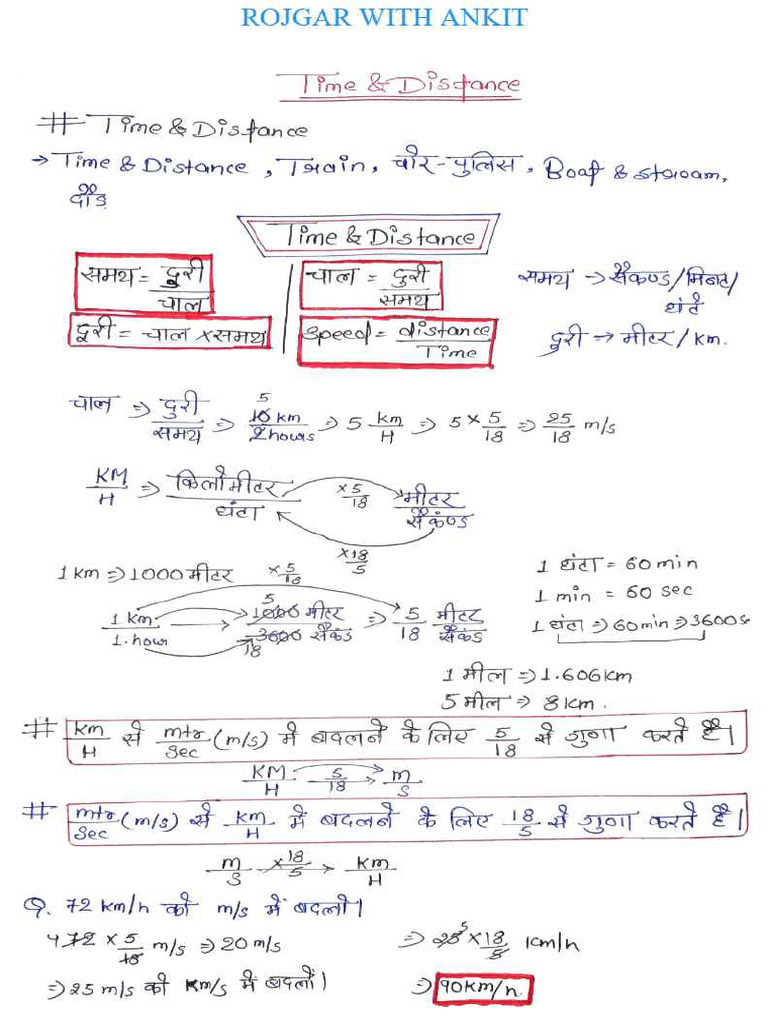 ROJGAR WITH ANKIT
Time & Distance
# Time & Distance
→ Time & Distance, Train, चोर-पुलिस, Boat & stream,
दौड़
Time & Distance
समय = दुरी/चाल
चाल = दुरी/समय
समय → सैकण्ड/मिनट/घंटे
दुरी = चाल × समय
Speed = distance/Time
दुरी → मीटर/km.
चाल ⇒ दुरी/समय ⇒ 10 km/2 hours 5 ⇒ 5 km/H ⇒ 5 × 5/18 ⇒ 25/18 m/s
KM/H ⇒ किलोमीटर/घंटा ×5/18 मीटर/सैकंण्ड
×18/5
1 km ⇒ 1000 मीटर ×5/18
1 घंटा = 60 min
1 min = 60 sec
1 km/1. hour 5 1000 मीटर/3600 सैकंड 18 ⇒ 5/18 मीटर/सैकंड
1 घंटा ⇒ 60 min ⇒ 3600s
1 मील ⇒ 1.606 km
5 मील ⇒ 8 km.
# km/H से mtr/sec (m/s) में बदलने के लिए 5/18 से गुणा करते है।
KM/H 5/18 m/s
# mtr/sec (m/s) से km/H में बदलने के लिए 18/5 से गुणा करते है।
m/s ×18/5 km/H
Q. 72 km/h को m/s में बदलो।
4 72 × 5/18 m/s ⇒ 20 m/s
⇒ 25 m/s को km/s में बदलों।
⇒ 25 5 × 18/5 km/h
⇒ 90 km/h.